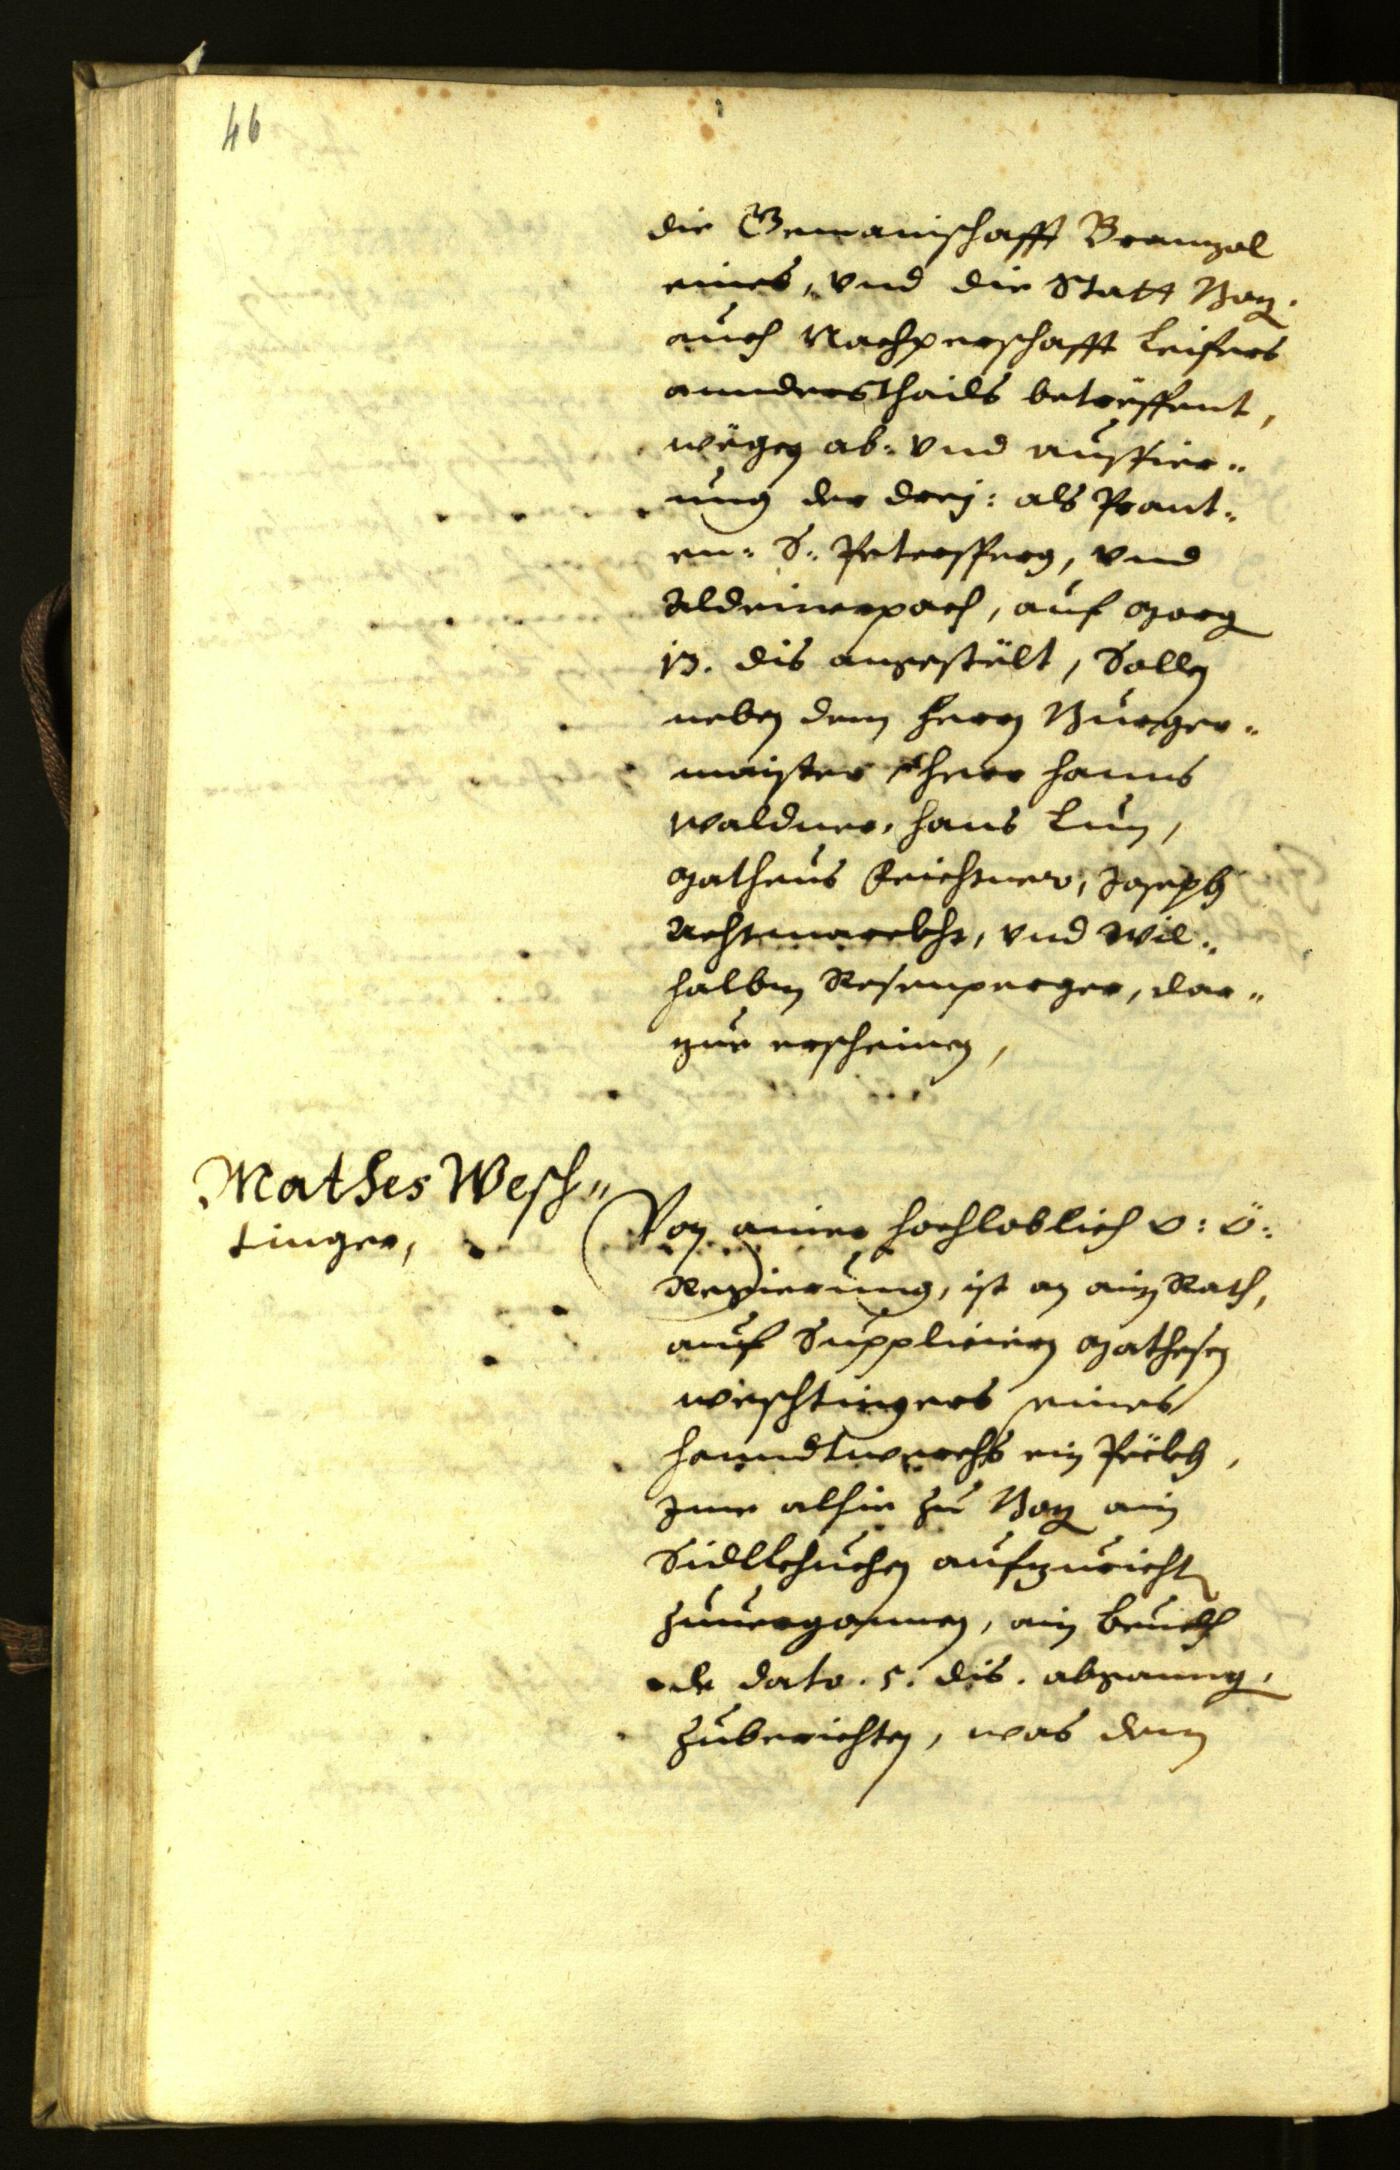 46
die Gemainschafft Branzol
eines, vnd die Statt Boz:
auch Nachperschafft Leifers
annderßthails betreffent,
wegen ab: vnd außfier„
ung der drej: als Prant„
en: S: Petersperg, vnd
Aldeinerpach, auf morg
13. dis angestelt, Sollen
neben dem herrn Burger„
maister herr hanns
Waldner, hans Lun,
Matheus Feichtner, Joseph
Achtmarckht, vnd Wil„
halbm Rosenperger, dar„
zue erscheinen,
Mathes Wesch„
tinger,
Von ainer hochloblich o: ö:
Regierung, ist an ain Rath,
auf Suppliciern Mathesen
Weschtingers eines
handtwerchs ein
Ime alhie zu Boz ain
Sidlkhuchen aufzuricht
zuuergonnen, ain beuelch
de dato. 5. dis. abganng,
zuberichten, was dem